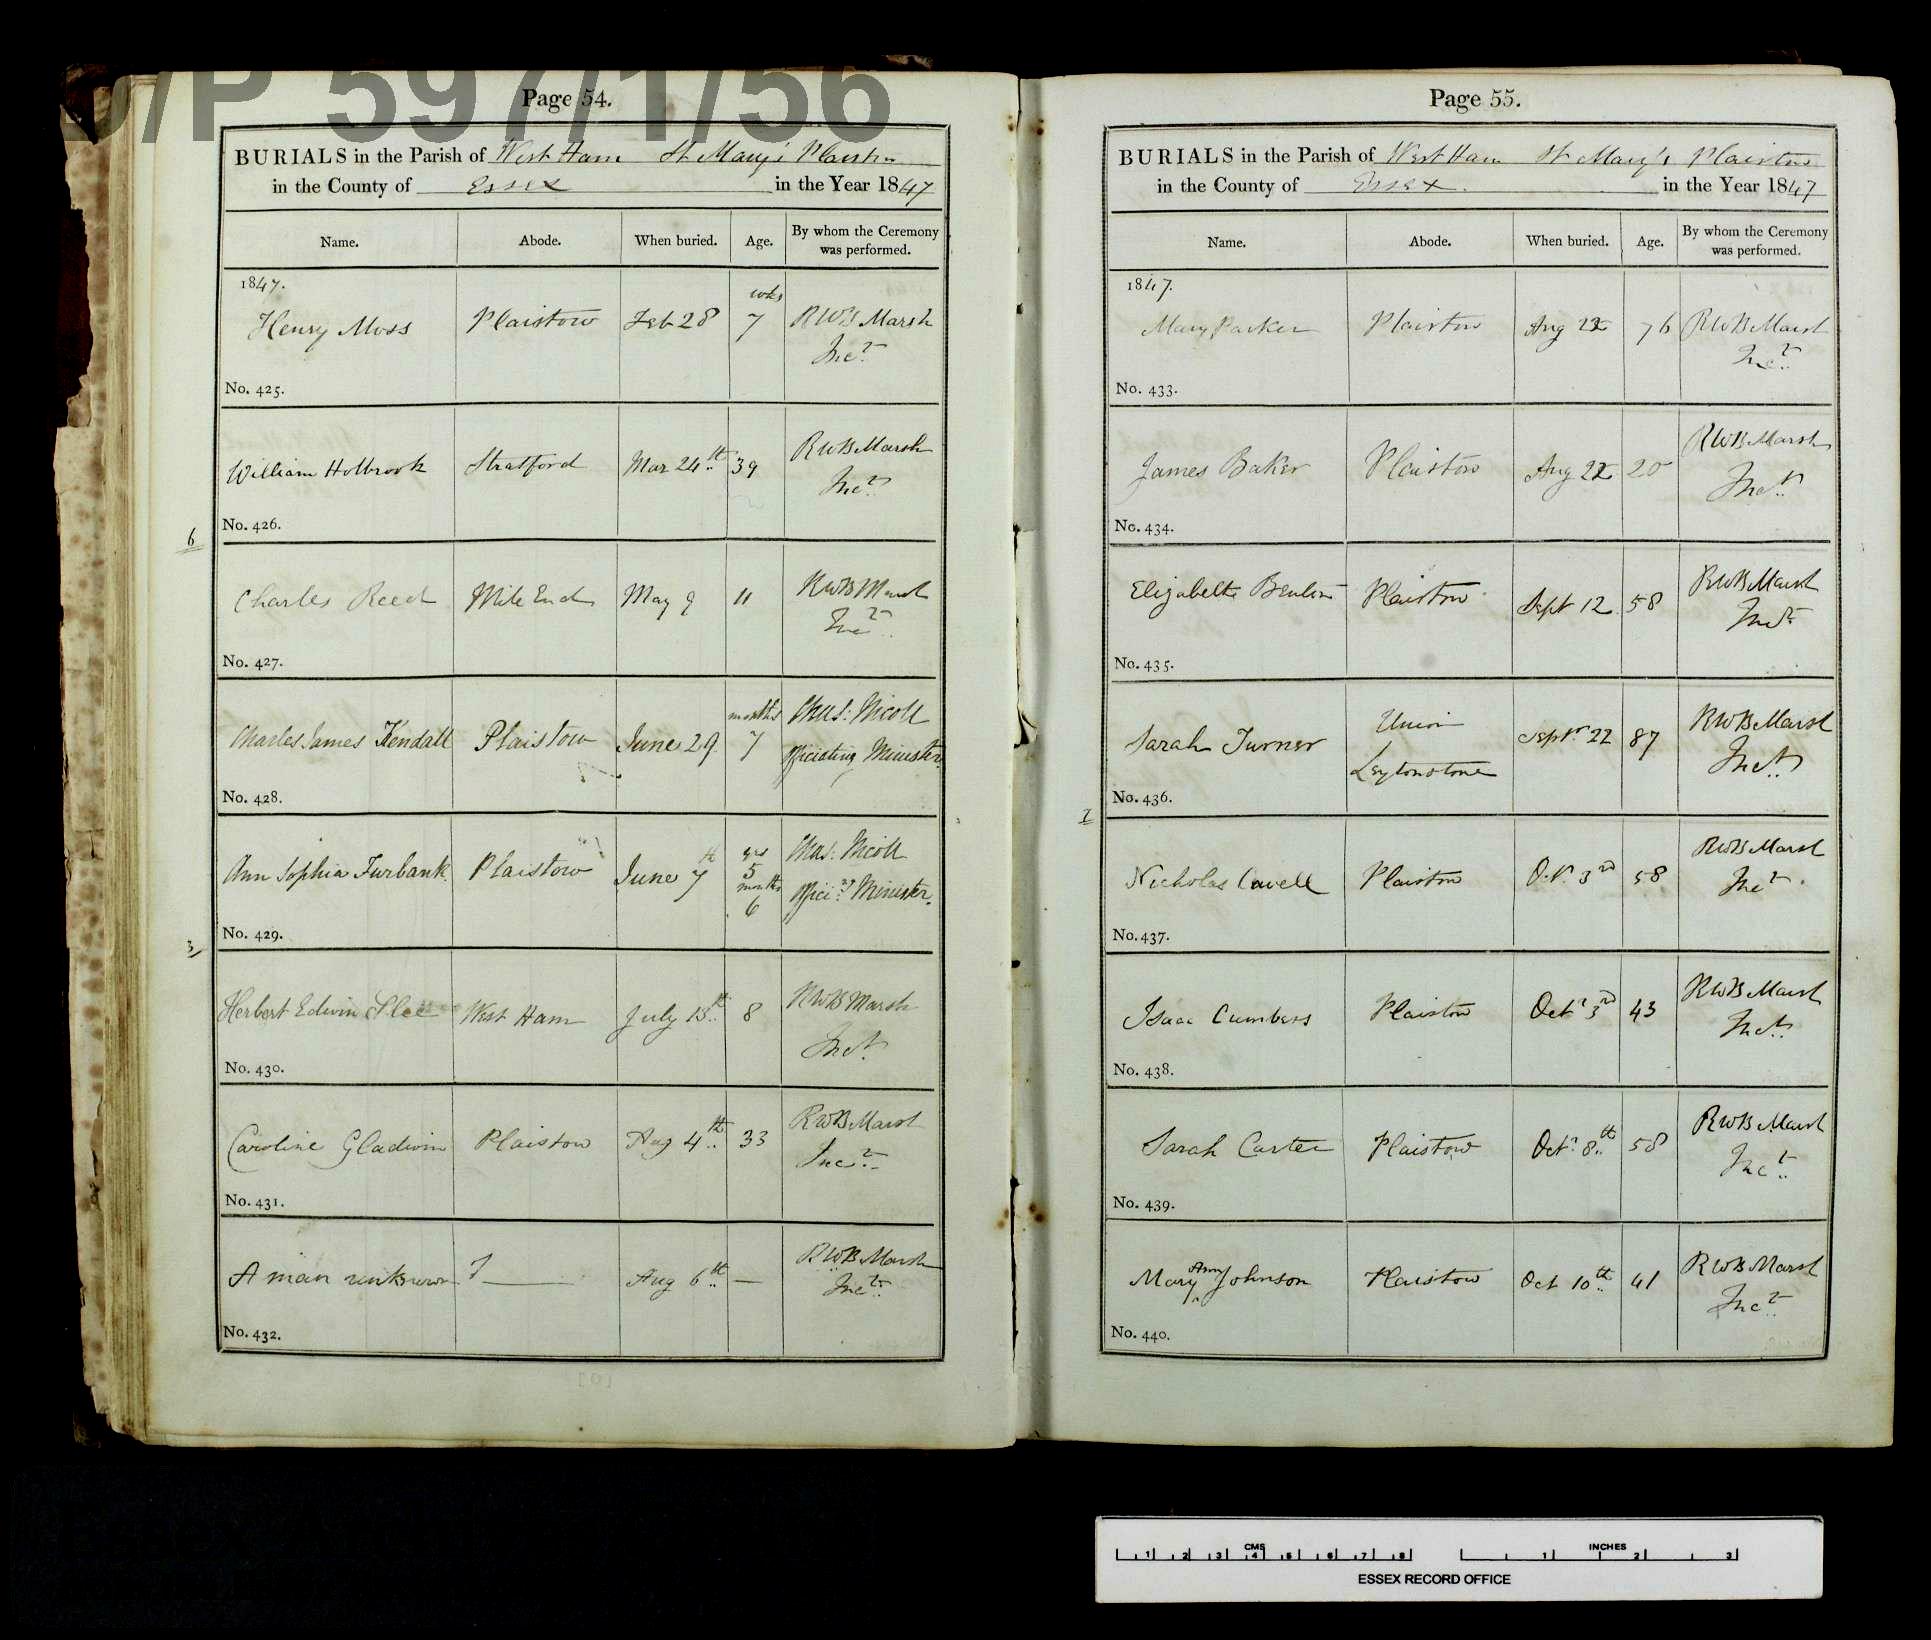 D/P 597/1/56
Page 54.
BURIALS in the Parish of West Ham St Mary's Plaistow
in the County of Essex in the Year 1847
Name. Abode. When buried. Age. By whom the Ceremony was performed.
1847.
Henry Moss Plaistow Feb 28 wks 7 RWB Marsh Inct
No. 425.
William Holbrook Stratford Mar 24th 39 RWB Marsh Inct
No. 426.
6
Charles Reed Mile End May 9 11 RWB Marsh Inct
No. 427.
Charles James Kendall Plaistow June 29 months 7 Chas: Nicoll Officiating Minister.
No. 428.
Ann Sophia Furbank Plaistow June 7th yrs 5 months 6 Chas: Nicoll Offici:ng Minister.
No. 429.
3
Herbert Edwin Slee West Ham July 18th 8 RWB Marsh Inct
No. 430.
Caroline Gladwin Plaistow Aug 4th 33 RWB Marsh Inct
No. 431.
A man unknown ? — Aug 6th — RWB Marsh Inct
No. 432.
Page 55.
BURIALS in the Parish of West Ham St Mary's Plaistow
in the County of Essex. in the Year 1847
Name. Abode. When buried. Age. By whom the Ceremony was performed.
1847.
Mary Parker Plaistow Aug 22 76 RWB Marsh Inct
No. 433.
James Baker Plaistow Aug 22 20 RWB Marsh Inct
No. 434.
Elizabeth Plaistow Sept 12 58 RWB Marsh Inct
No. 435.
Sarah Turner Union Leytonstone Septr 22 87 RWB Marsh Inct
No. 436.
Nicholas Cavell Plaistow Oct 3rd 58 RWB Marsh Inct
No. 437.
Isaac Cumbers Plaistow Octr 3rd 43 RWB Marsh Inct
No. 438.
Sarah Carter Plaistow Octr 8th 58 RWB Marsh Inct
No. 439.
Mary Ann Johnson Plaistow Oct 10th 41 RWB Marsh Inct
No. 440.
CMS 1 2 3 4 5 6 7 8
INCHES 1 2 3
ESSEX RECORD OFFICE